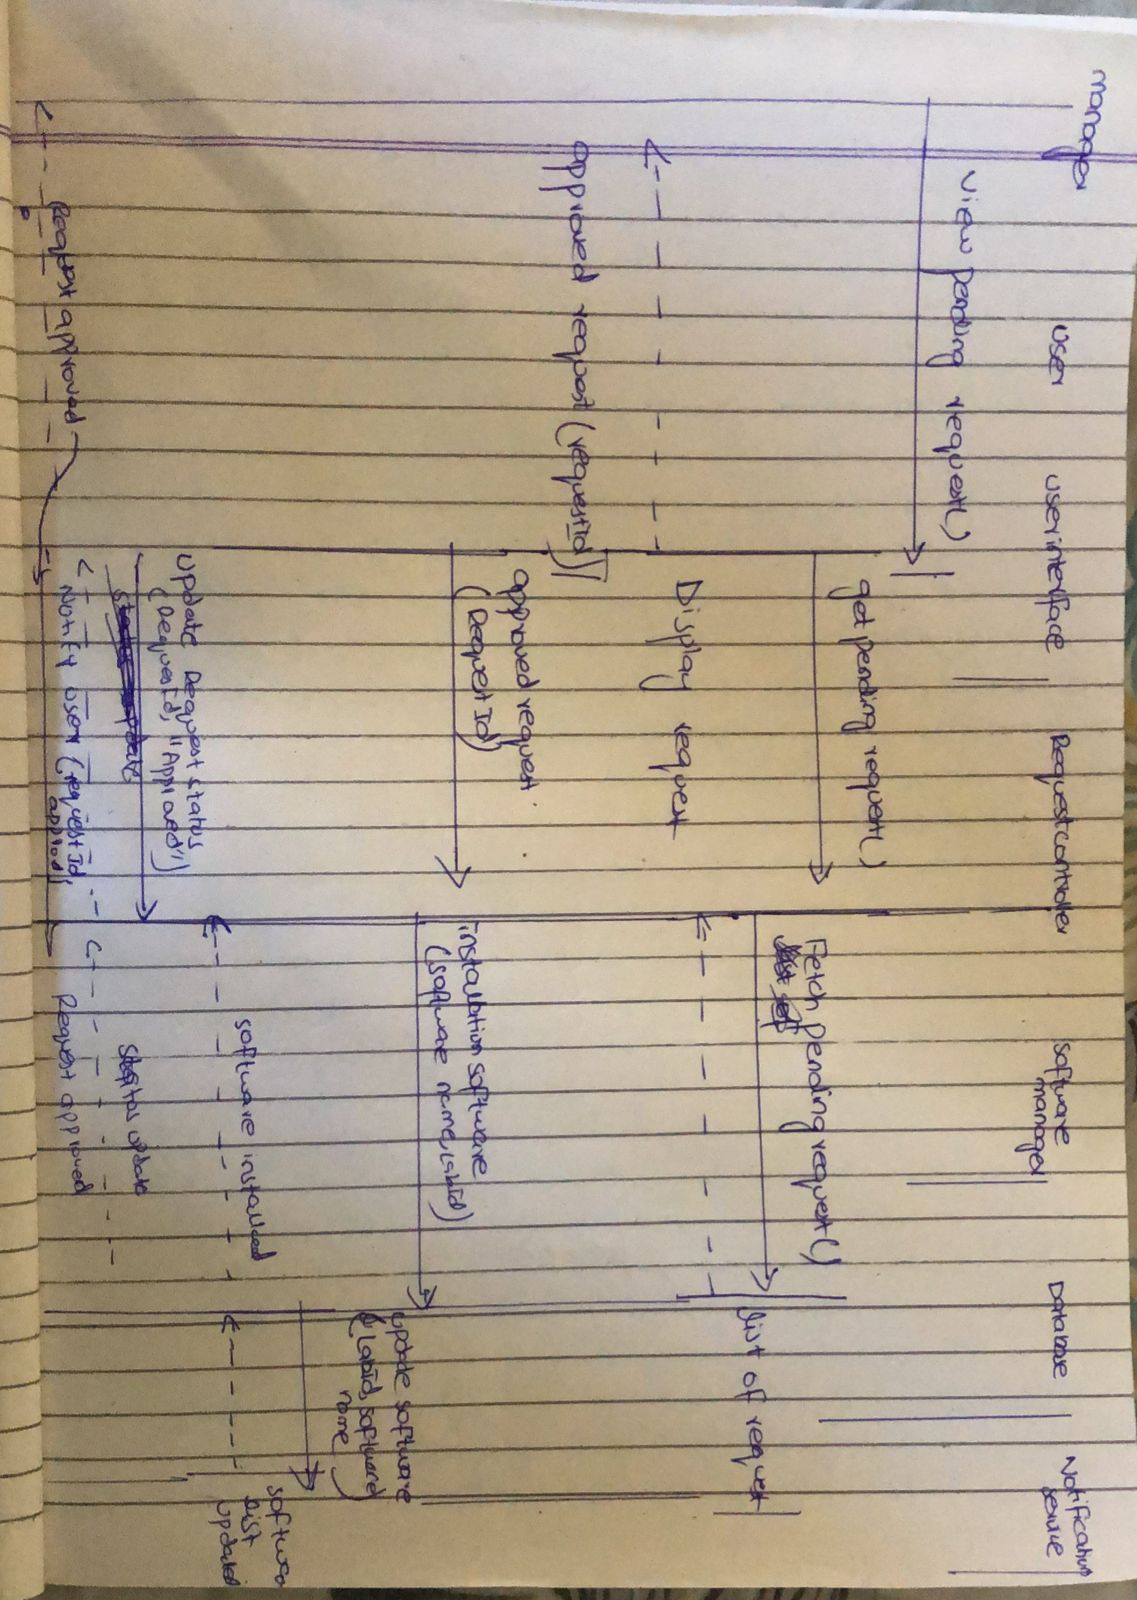 manager
user
userinterface
Requestcontroller
software
manager
Database
Notification
service
view pending request()
getpending request()
Fetch pending request()
list of request
Display request
approved request (requestId)
approved request
(RequestId)
installation software
(software name, labid)
update software
(labId, software
name)
software installed
software
list
updated
update Request status
(RequestId, "Approved")
status update
Request approved
Notify user (requestId,
Request approved